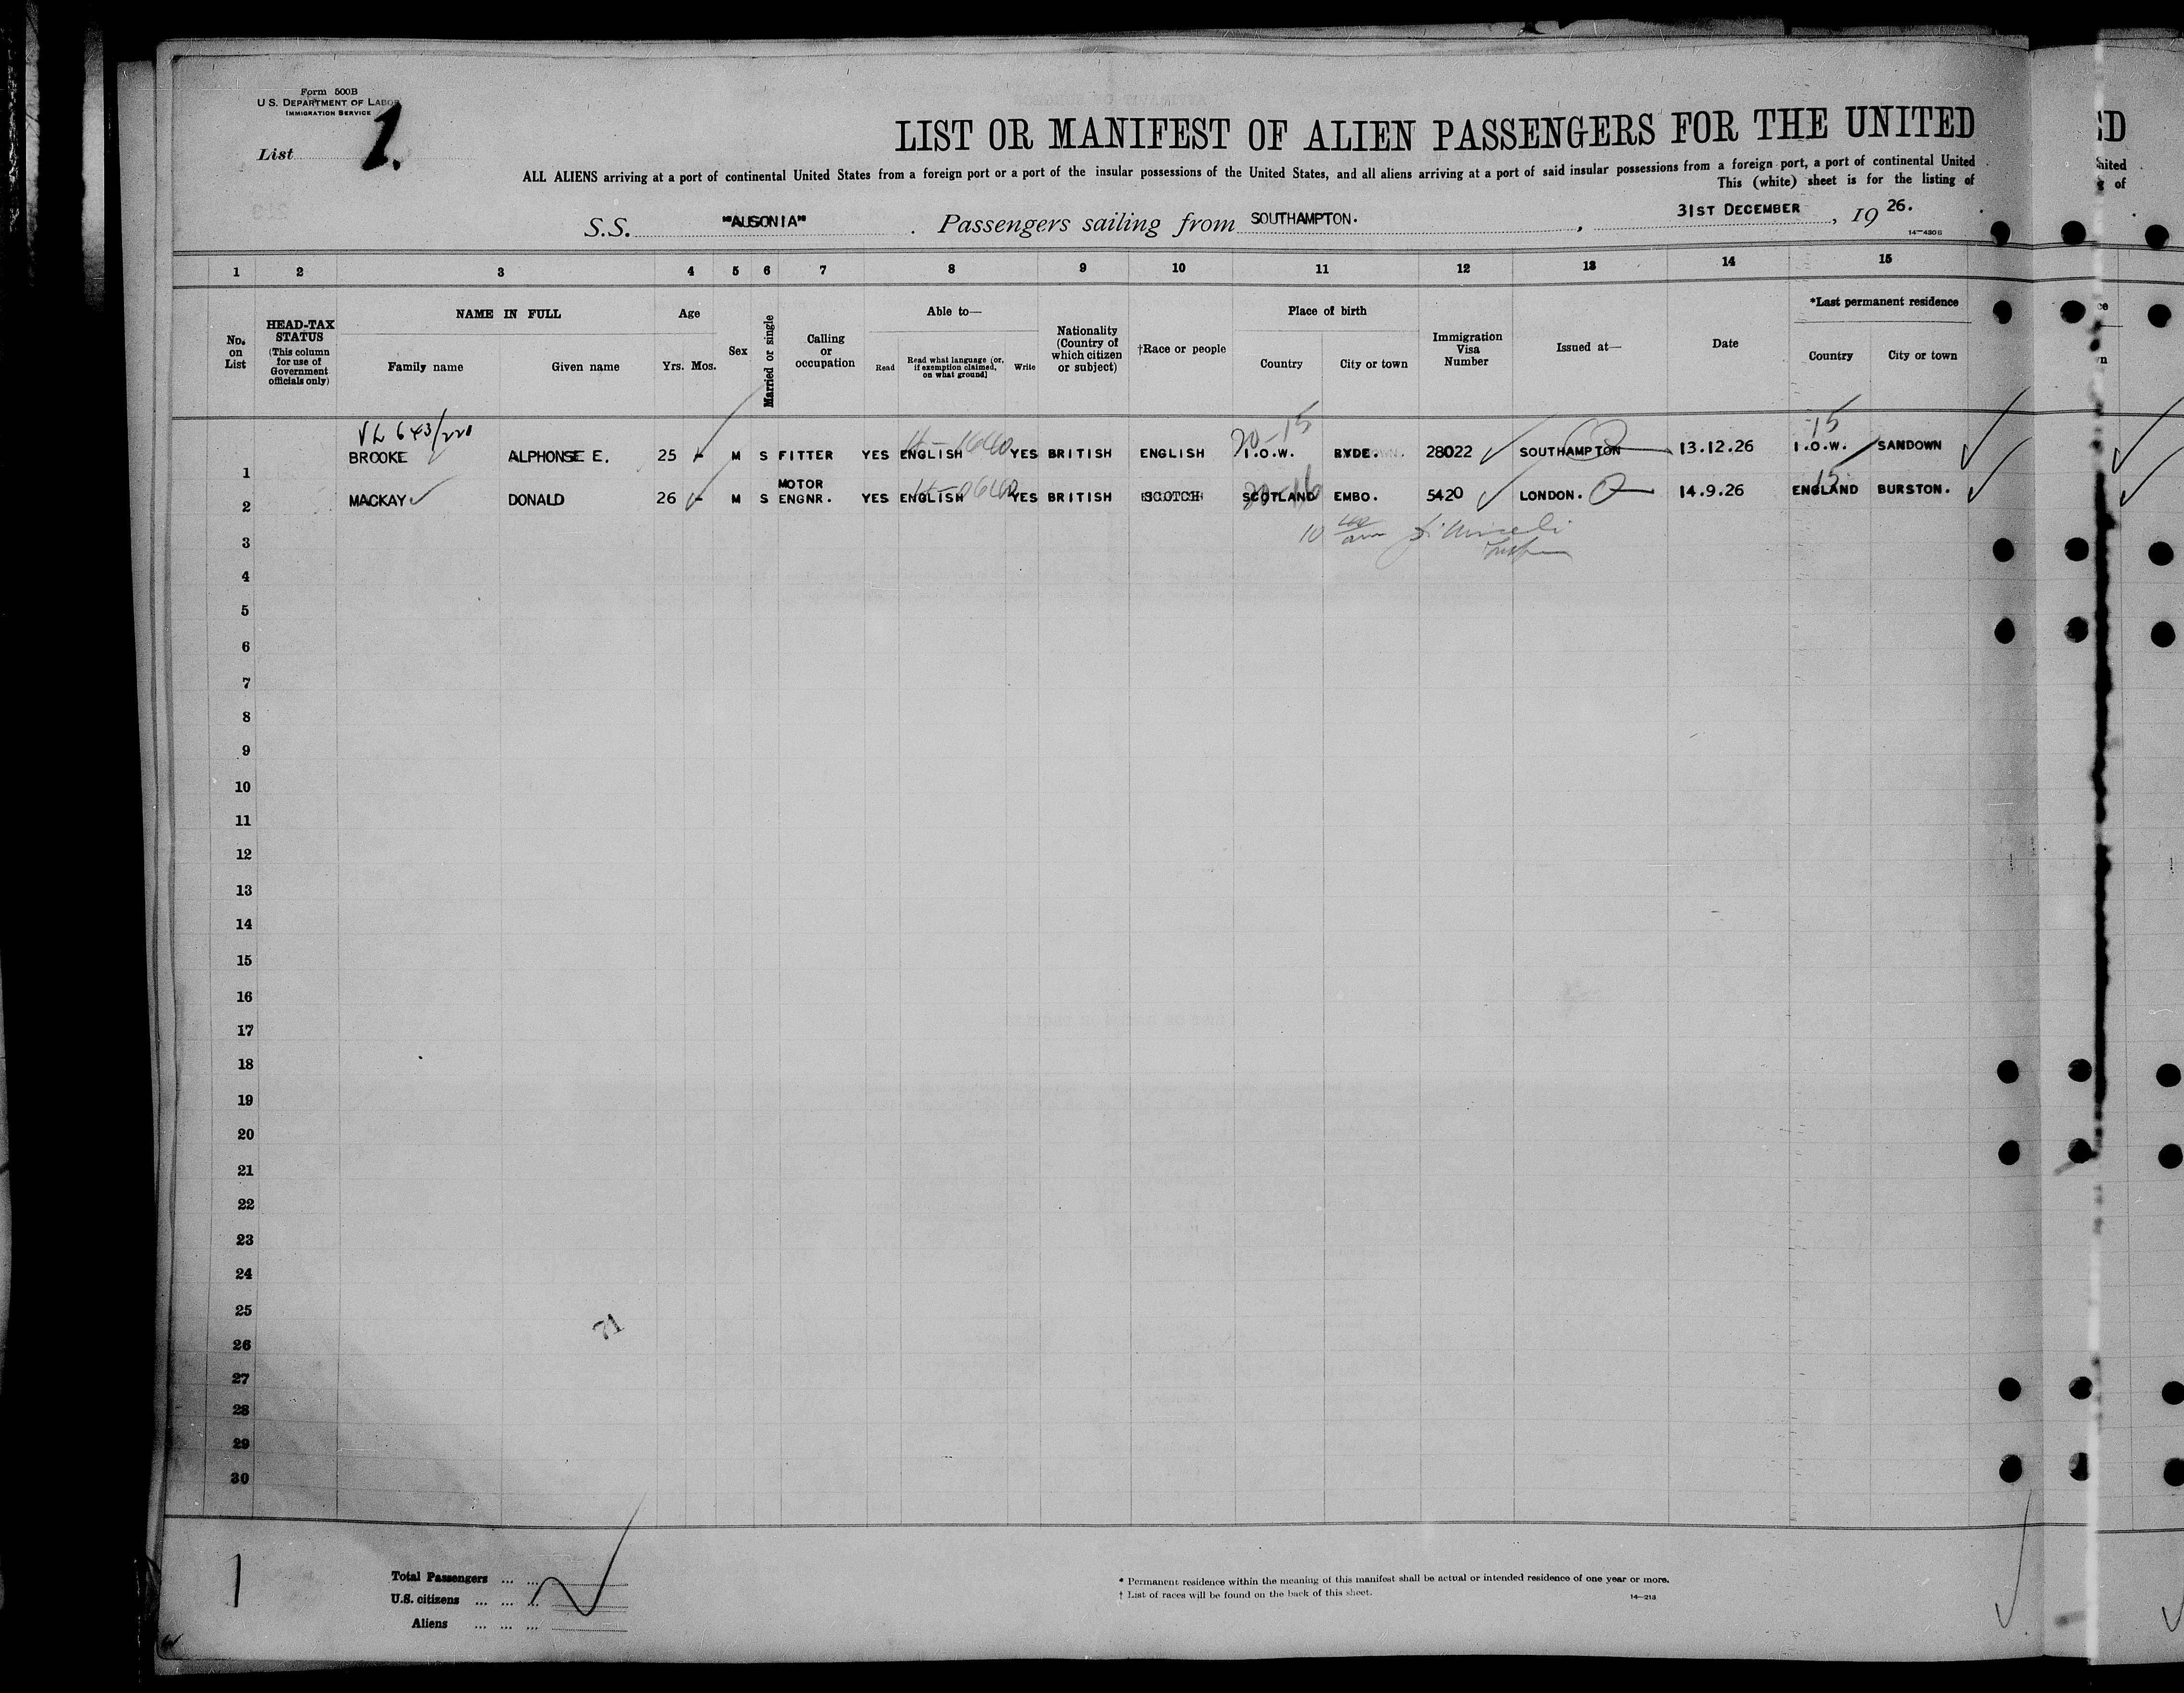 Form 500B
U.S. DEPARTMENT OF LABOR
IMMIGRATION SERVICE
List 1.
LIST OR MANIFEST OF ALIEN PASSENGERS FOR THE UNITED
ALL ALIENS arriving at a port of continental United States from a foreign port or a port of the insular possessions of the United States, and all aliens arriving at a port of said insular possessions from a foreign port, a port of continental United
This (white) sheet is for the listing of
S.S. "AUSONIA" . Passengers sailing from SOUTHAMPTON. , 31ST DECEMBER , 19 26.
14—430B
1 2 3 4 5 6 7 8 9 10 11 12 13 14 15
No. on List
HEAD-TAX STATUS
(This column for use of Government officials only)
NAME IN FULL
Family name Given name
Age
Yrs. Mos.
Sex
Married or single
Calling or occupation
Able to—
Read
Read what language [or, if exemption claimed, on what ground]
Write
Nationality (Country of which citizen or subject)
†Race or people
Place of birth
Country City or town
Immigration Visa Number
Issued at—
Date
*Last permanent residence
Country City or town
VL 643/220 20-15 15
1 BROOKE ALPHONSE E. 25 - M S FITTER YES ENGLISH YES BRITISH ENGLISH I.O.W. RYDE. 28022 SOUTHAMPTON 13.12.26 I.O.W. SANDOWN
2 MACKAY DONALD 26 - M S MOTOR ENGNR. YES ENGLISH YES BRITISH SCOTCH SCOTLAND EMBO. 5420 LONDON. 14.9.26 ENGLAND BURSTON.
3
4
5
6
7
8
9
10
11
12
13
14
15
16
17
18
19
20
21
22
23
24
25
71
26
27
28
29
30
1
Total Passengers ... ...
U.S. citizens ... ... ...
Aliens ... ... ...
* Permanent residence within the meaning of this manifest shall be actual or intended residence of one year or more.
† List of races will be found on the back of this sheet.
14—213